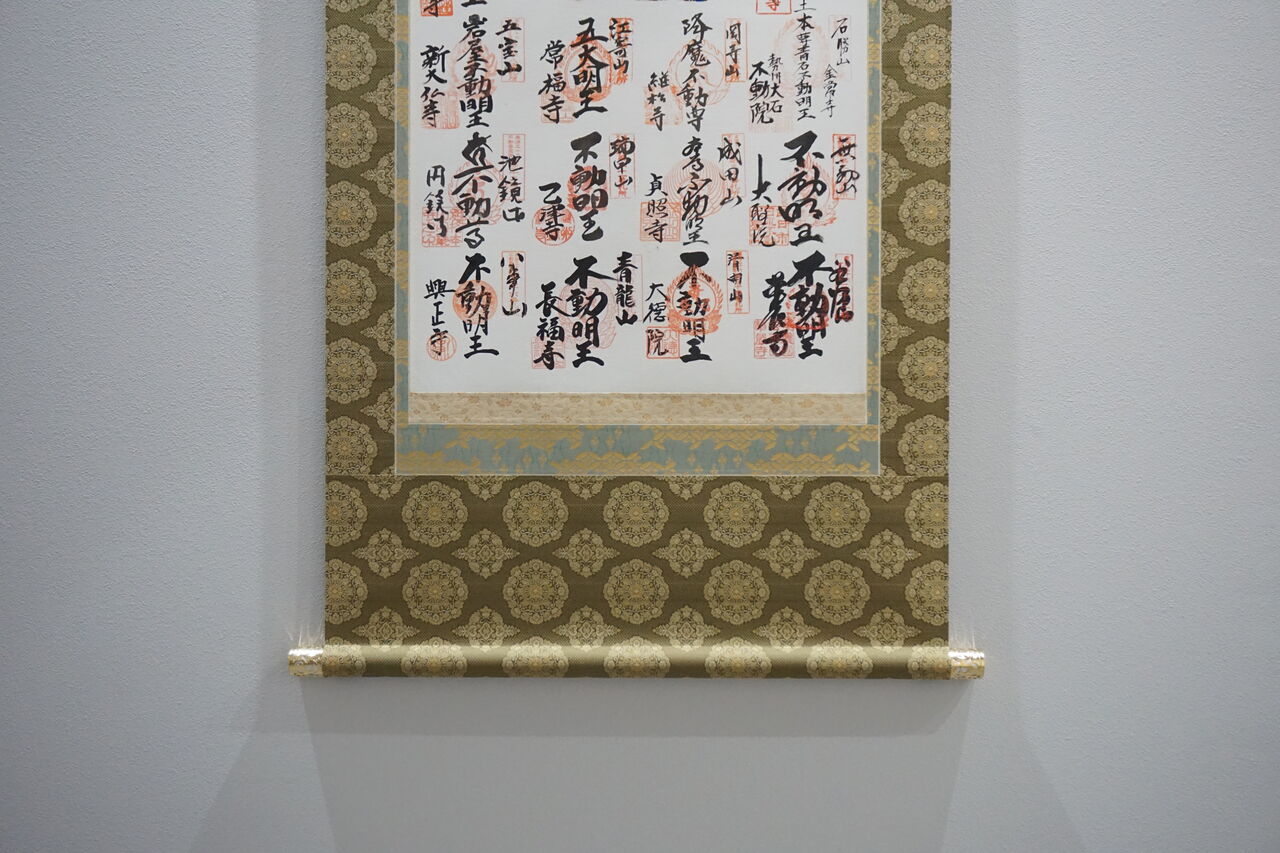 石勝山
金剛寺
本尊青石不動明王
勢州大石
不動院
岡寺山
降魔不動尊
継松寺
江寄山
五大明王
常福寺
五宝山
岩屋不動明王
新大仏寺
無動山
不動明王
大聖院
成田山
不動明王
貞照寺
瑞甲山
不動明王
乙津寺
池鏡山
不動尊
円鏡寺
不動明王
不動明王
大徳院
青龍山
不動明王
長福寺
八事山
不動明王
興正寺